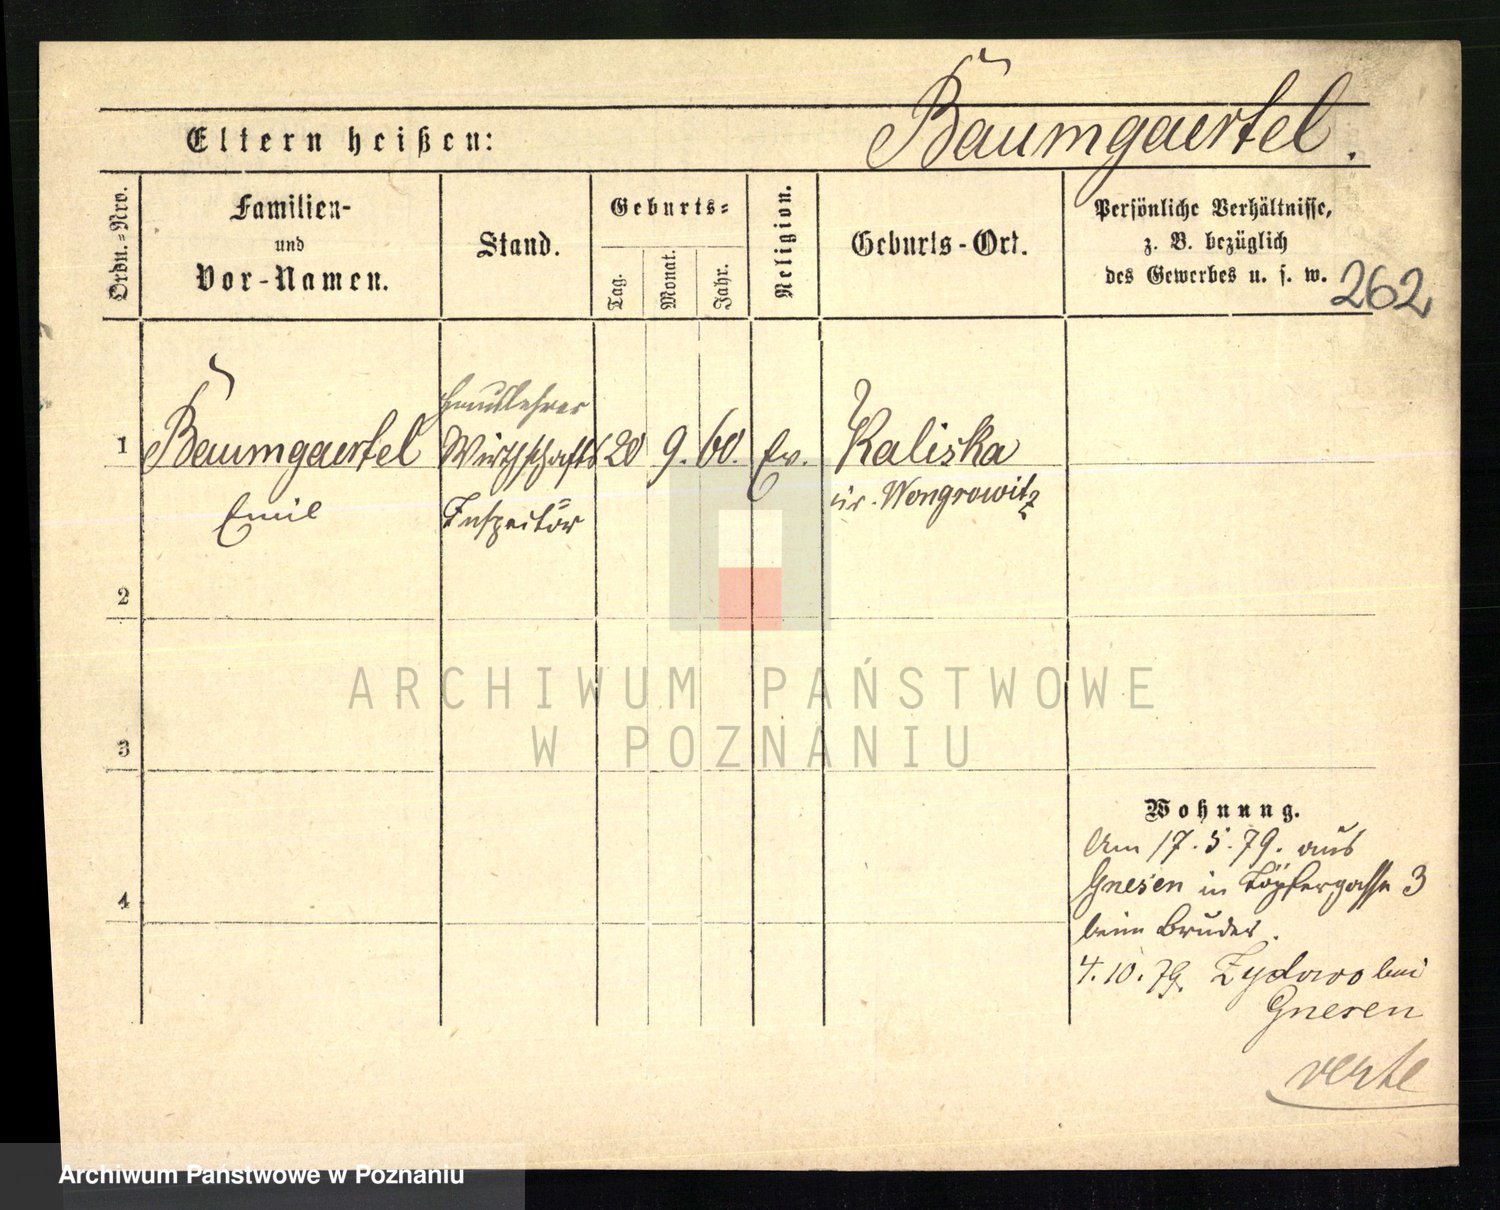 Baumgaertel.
Eltern heißen:
Ordn.-Nro.
Familien-
und
Vor-Namen.
Stand.
Geburts-
Tag.
Monat.
Jahr.
Religion.
Geburts-Ort.
Persönliche Verhältnisse,
z. B. bezüglich
des Gewerbes u. s. w.
262
1
Baumgaertel
Emil
Hauslehrer
Wirthschafts
Inspector
20
9.
60.
Ev.
Kaliska
Kr. Wongrowitz
2
3
4
Wohnung.
Am 17.5.79. aus
Gnesen in Töpfergasse 3
beim Bruder.
4.10.79. Zydowo bei
Gnesen
verte
ARCHIWUM PAŃSTWOWE
W POZNANIU
Archiwum Państwowe w Poznaniu